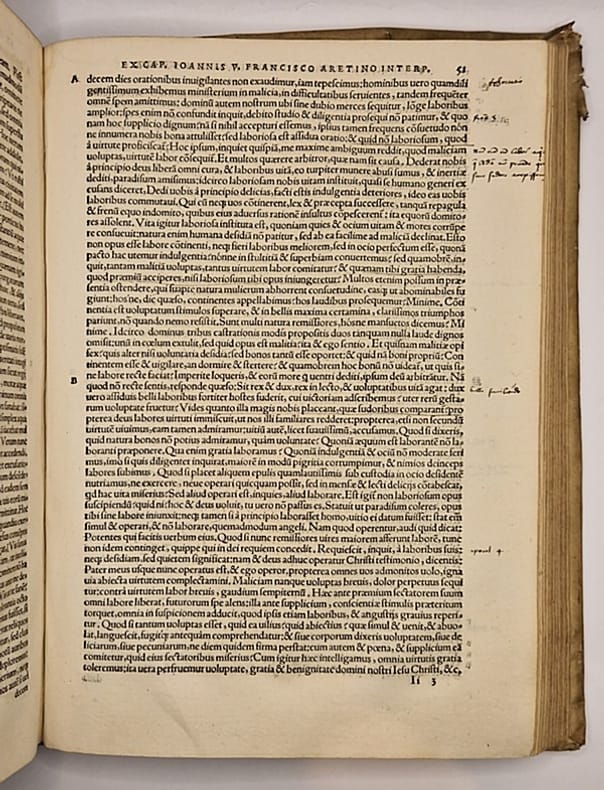 EX CAP. IOANNIS V. FRANCISCO ARETINO INTERP. 51
A decem dies orationibus inuigilantes non exaudimur, iam tepescimus: hominibus uero quamdiu
gentissimum exhibemus ministerium in malicia, in difficultatibus seruientes, tandem frequēter
omnē spem amittimus: dominū autem nostrum ubi sine dubio merces sequitur, lōge laboribus
amplior: spes enim nō confundit inquit, debito studio & diligentia prosequi nō patimur, & quo
nam hoc supplicio dignum: nā si nihil accepturi essemus, ipsius tamen frequens cōsuetudo nōn
ne innumera nobis bona attulisset: sed laboriosa est assidua oratio: & quid nō laboriosum, quod
à uirtute proficiscat: Hoc ipsum, inquiet quispiā, me maxime ambiguum reddit, quod maliciam
uoluptas, uirtutē labor cōsequit. Et multos quærere arbitror, quæ nam sit causa, Dederat nobis
à principio deus liberā omni cura, & laboribus uitā, eo turpiter munere abusi sumus, & inertiæ
dediti, paradisum amisimus: idcirco laboriosam nobis uitam instituit, quasi se humano generi ex
cusans diceret, Dedi uobis à principio delicias, facti estis indulgentia deteriores, ideo eas uobis
laboribus commutaui. Qui cū neq; uos cōtinerent, lex & præcepta successere, tanquā repagula
& frenā equo indomito, quibus eius aduersus rationē insultus cōpescerent: ita equorū domito-
res assolent. Vita igitur laboriosa instituta est, quoniam quies & ocium uitam & mores corrūpe
re consueuit: natura enim humana desidiā nō patitur, sed ab ea facilime ad maliciā declinat. Esto
non opus esse labore cōtinenti, neq; fieri laboribus meliorem, sed in ocio perfectum esse, quonā
pacto hac utemur indulgentia: nōnne in stulticiā & superbiam conuertemus: sed quamobrē, in-
quit, tantam malitiā uoluptas, tantus uirtutem labor comitatur: & quænam tibi gratia habenda,
quod præmiū acciperes, nisi laboriosum tibi opus iniungeretur: Multos etenim possum in præ-
sentia ostendere, qui suapte natura mulierum abhorrent consuetudinē, easq; ut abominabiles fu
giunt: hos'ne, dic quæso, continentes appellabimus: hos laudibus prosequemur: Minime. Cōti
nentia est uoluptatum stimulos superare, & in bellis maxima certamina, clarissimos triumphos
pariunt, nō quando nemo resistit. Sunt multi natura remissiores, hos'ne mansuetos dicemus: Mi
nime. Idcirco dominus tribus castrationis modis propositis duos tanquam nulla laude dignos
omisit: unū in cœlum extulit, sed quid opus est malitia: ita & ego sentio. Et quisnam malitiæ opi
fex: quis alter nisi uoluntaria desidia: sed bonos tantū esse oportet: & quid nā boni proprium: Con
tinentem esse & uigilare, an dormire & stertere: & quamobrem hoc bonū nō uideat, ut quis si-
ne labore recte faciat: Imperite loqueris, & eorū more q uentri dediti, ipsum deū arbitrātur. Nā
B quod nō recte sentis, responde quæso: Sit rex & dux, rex in lecto, & uoluptatibus uitā agat: dux
uero assiduis belli laboribus fortiter hostes fuderit, cui uictoriam adscribemus: uter rerū gesta-
rum uoluptate fruetur: Vides quanto illa magis nobis placeant, quæ sudoribus comparant: pro
pterea deus labores uirtuti immiscuit, ut non illi familiares redderet: propterea, etsi non secundū
uirtutē uiuimus, eam tamen admiramur: uitiū autē, licet suauissimū, accusamus. Quod si dixeris,
quid natura bonos nō potius admiramur, quàm uoluntate: Quoniā æquum est laborantē nō la-
boranti præponere. Qua enim gratia laboramus: Quoniā indulgentiā & ociū nō moderate feri
mus, imò si quis diligenter inquirat, maiorē in modū pigritia corrumpimur, & nimios deinceps
labores subimus, Quod si placet aliquem epulis quamlautissimis sub custodia in ocio desidentē
nutriamus, ne exercere, neue operari quicquam possit, sed in mensæ & lecti delicijs cōtabescat,
qd hac uita miserius: Sed aliud operari est, inquies, aliud laborare. Est igit non laboriosum opus
suscipiendū: quid ni: hoc & deus uoluit, tu uero nō passus es. Statuit ut paradisum coleres, opus
tibi sine labore iniunxit: neq; tamen si à principio laborasset homo, uitio ei datum fuisset: stat em
simul & operari, & nō laborare, quemadmodum angeli. Nam quod operentur, audi quid dicat:
Potentes qui facitis uerbum eius. Quod si nunc remissiores uires maiorem afferunt labore, tunc
non idem continget, quippe qui in dei requiem concedit. Requiescit, inquit, à laboribus suis:
neq; desidiam, sed quietem significat: nam & deus adhuc operatur Christi testimonio, dicentis:
Pater meus usque nunc operatus est, & ego operor. propterea omnes uos admonitos uolo, igna
uia abiecta uirtutem complectamini. Maliciam nanque uoluptas breuis, dolor perpetuus sequi
tur: contrà uirtutem labor breuis, gaudium sempiternū. Hæc ante præmium sectatorem suum
omni labore liberat, futurorum spe alens: illa ante supplicium, conscientiæ stimulis præteritum
torquet, omnia in suspicionem adducit, quod ipsis etiam laboribus, & angustijs grauius reperi-
tur. Quod si tantum uoluptas esset, quid ea uilius: quid abiectius: quæ simul & uenit, & abuo-
lat, languescit, fugitq; antequàm comprehendatur: & siue corporum dixeris uoluptatem, siue de
liciarum, siue pecuniarum, ne diem quidem firma perstat: cum autem & pœna, & supplicium eā
comitetur, quid eius sectatoribus miserius: Cum igitur hæc intelligamus, omnia uirtutis gratia
toleremus: ita uera perfruemur uoluptate, gratia & benignitate domini nostri Iesu Christi, &c.
Ii 3